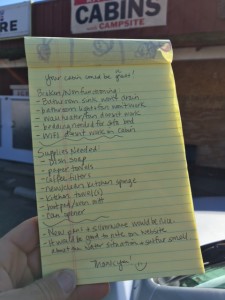 CABINS
CAMPSITE
Your cabin would be great!
Broken/Nonfunctioning
- Bathroom sink won't drain
- bathroom light/fan won't work
- heater/fan doesn't work
- bedding needed for sofa bed
- WiFi doesn't work in cabin
Supplies Needed:
- Dish soap
- paper towels
- coffee filters
- new/clean kitchen sponge
- Kitchen towel(s)
- hotpad/oven mitt
- Can opener
- New pans & silverware would be nice
- It would be good to note on website
about the water situation & sulfur smell
Thank you!